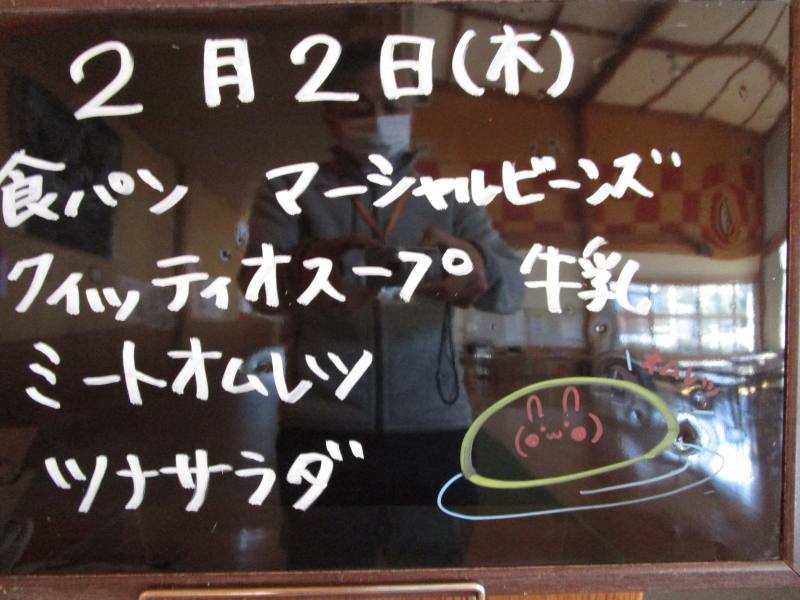 2月2日(木)
食パン マーシャルビーンズ
クィッティオスープ 牛乳
ミートオムレツ
オムレツ
ツナサラダ